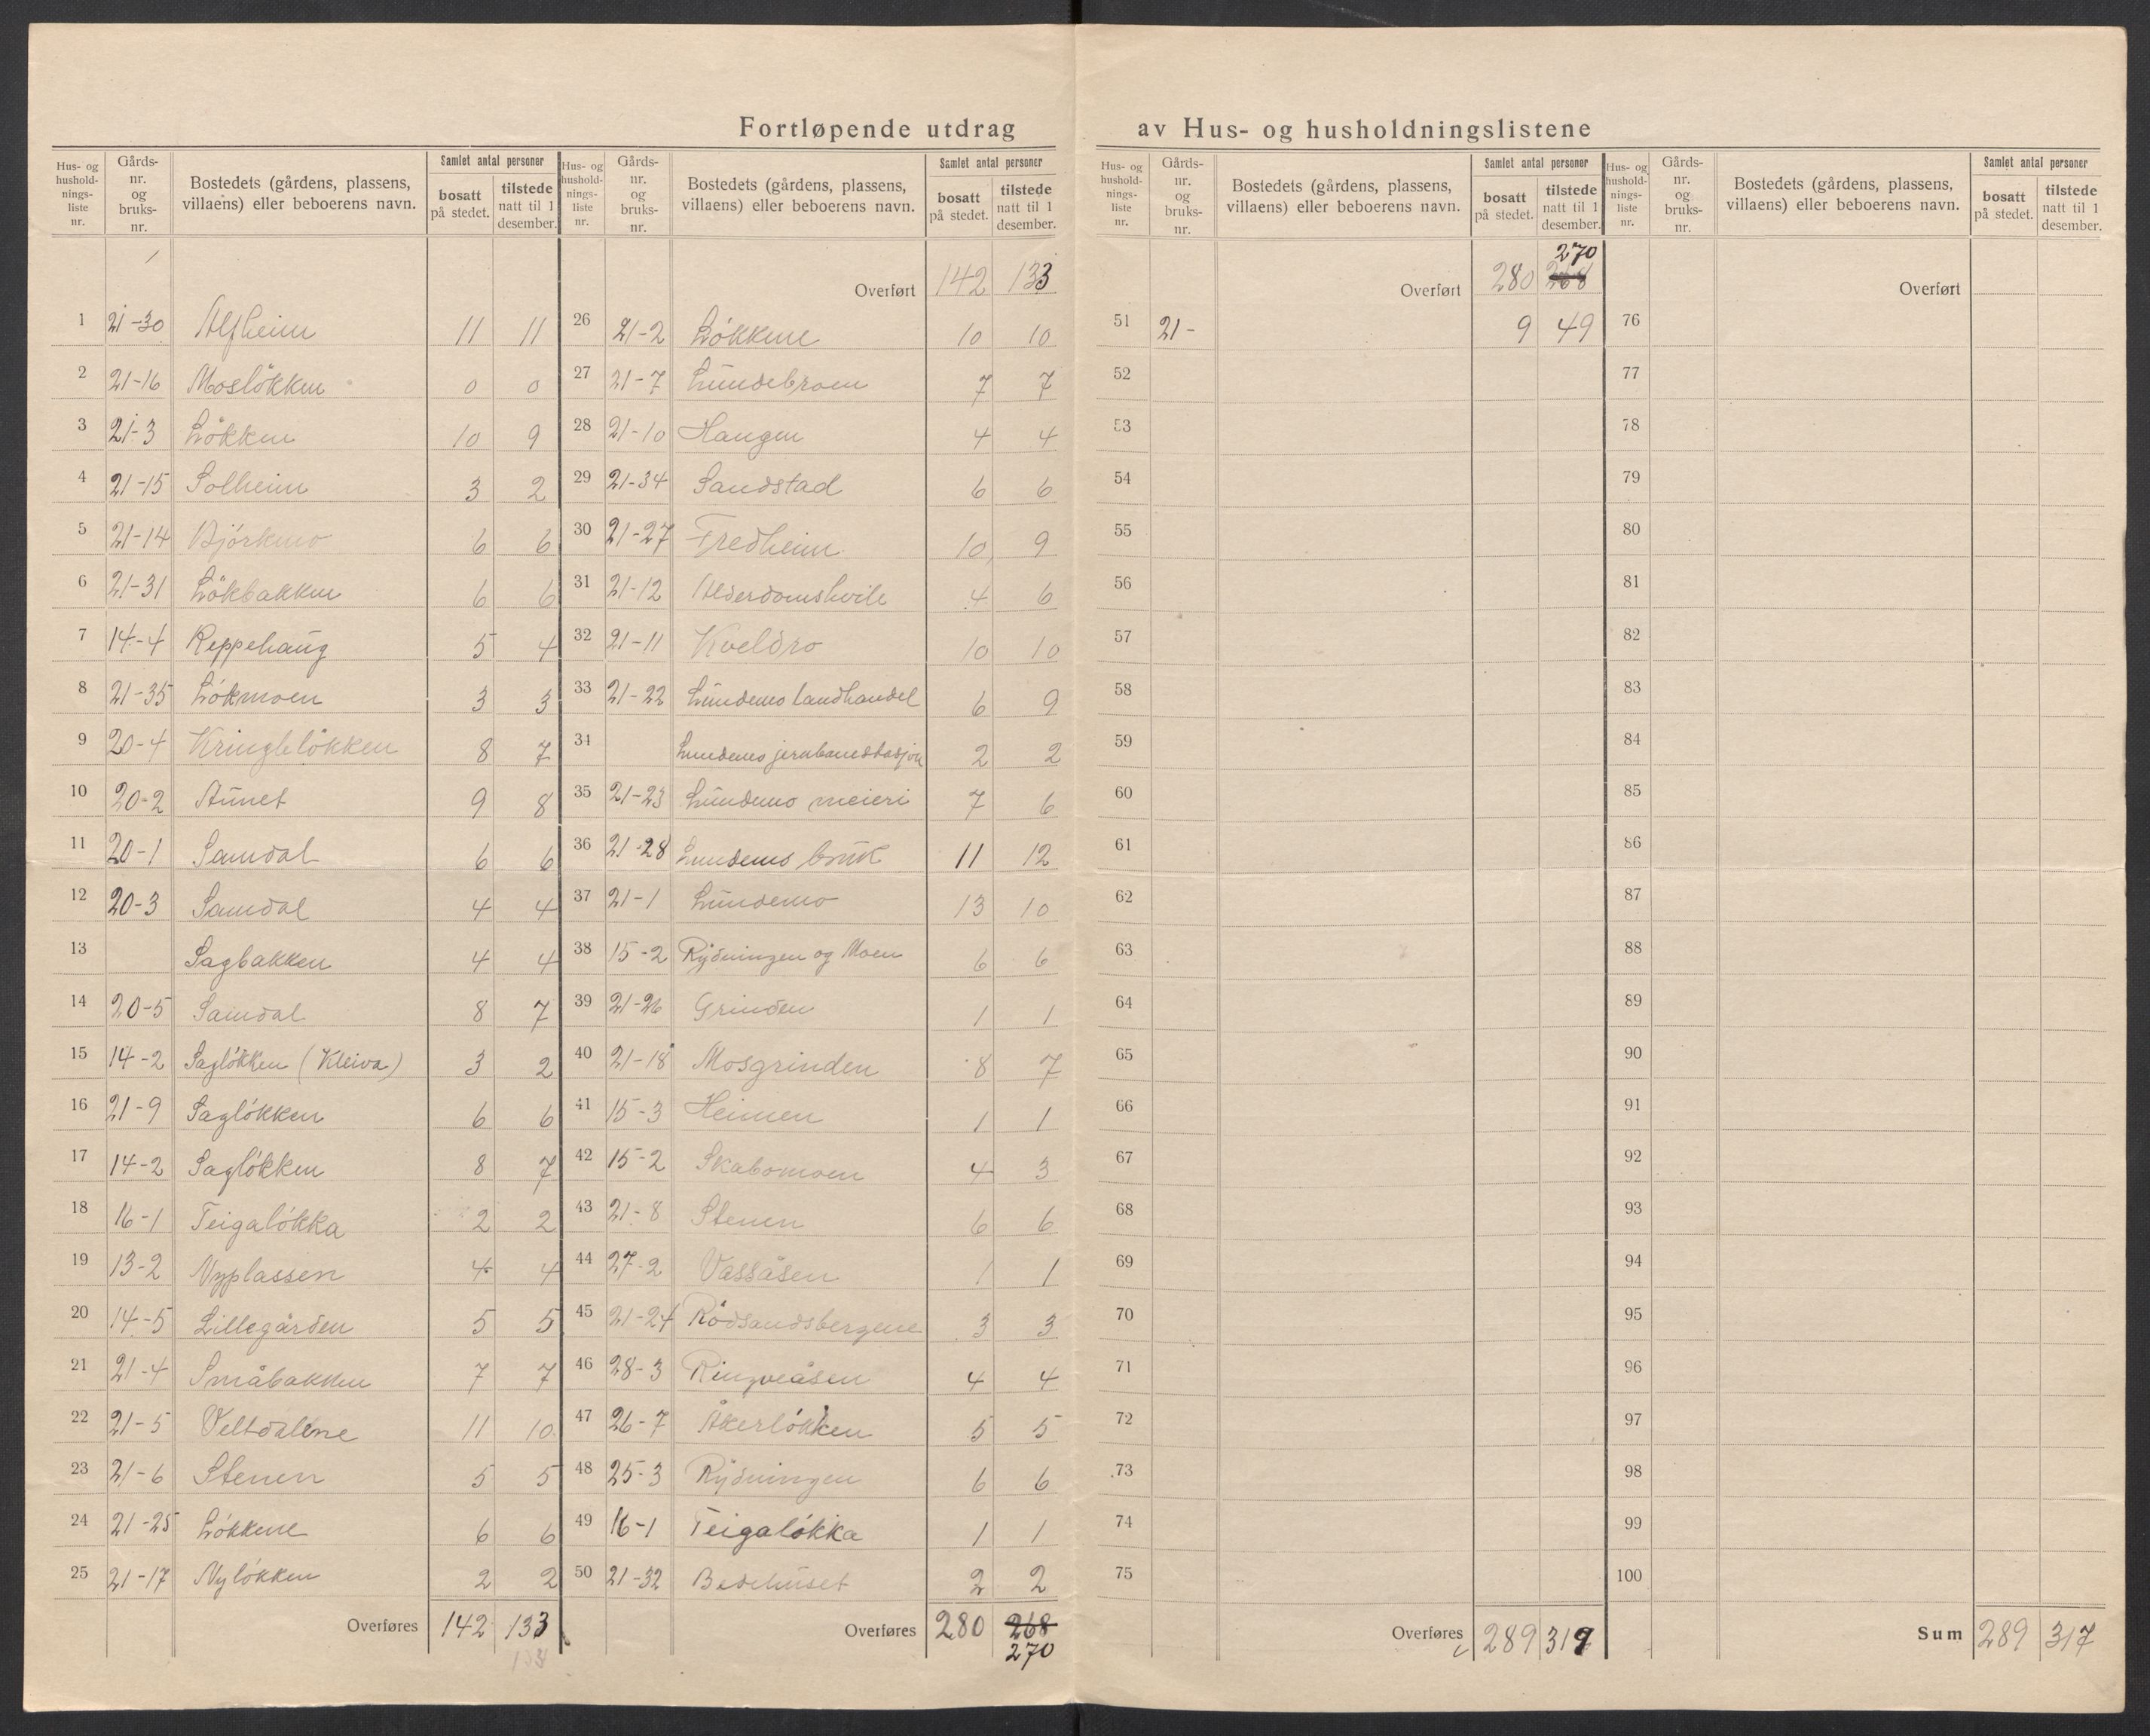 Fortløpende utdrag av Hus- og husholdningslistene
Hus- og hushold-nings-liste nr. Gårds-nr. og bruks-nr. Bostedets (gårdens, plassens, villaens) eller beboerens navn. Samlet antal personer bosatt på stedet. tilstede natt til 1 desember.
1 21-30 Alfheim 11 11
2 21-16 Moslökken 0 0
3 21-3 Lökken 10 9
4 21-15 Solheim 3 2
5 21-14 Björkmo 6 6
6 21-31 Lökbakken 6 6
7 14-4 Reppehaug 5 4
8 21-35 Lökmoen 3 3
9 20-4 Kringlelökken 8 7
10 20-2 Aunet 9 8
11 20-1 Samdal 6 6
12 20-3 Samdal 4 4
13 Sagbakken 4 4
14 20-5 Samdal 8 7
15 14-2 Saglökken (Kleiva) 3 2
16 21-9 Saglökken 6 6
17 14-2 Saglökken 8 7
18 16-1 Teigalökka 2 2
19 13-2 Nyplassen 4 4
20 14-5 Lillegården 5 5
21 21-4 Småbakken 7 7
22 21-5 Veltdalene 11 10
23 21-6 Stenen 5 5
24 21-25 Lökkene 6 6
25 21-17 Nylökken 2 2
Overføres 142 133
Hus- og hushold-nings-liste nr. Gårds-nr. og bruks-nr. Bostedets (gårdens, plassens, villaens) eller beboerens navn. Samlet antal personer bosatt på stedet. tilstede natt til 1 desember.
Overført 142 133
26 21-2 Lökkene 10 10
27 21-7 Lundebroen 7 7
28 21-10 Haugen 4 4
29 21-34 Sandstad 6 6
30 21-27 Fredheim 10 9
31 21-12 Alderdomshvile 4 6
32 21-11 Kveldro 10 10
33 21-22 Lundemo landhandel 6 9
34 Lundemo jernbanestasjon 2 2
35 21-23 Lundemo meieri 7 6
36 21-28 Lundemo bruk 11 12
37 21-1 Lundemo 13 10
38 15-2 Rydningen og Moen 6 6
39 21-26 Grinden 1 1
40 21-18 Mosgrinden 8 7
41 15-3 Heimen 1 1
42 15-2 Skabomoen 4 3
43 21-8 Stenen 6 6
44 27-2 Vassåsen 1 1
45 21-24 Rödsandsbergene 3 3
46 28-3 Ringveåsen 4 4
47 26-7 Åkerlökken 5 5
48 25-3 Rydningen 6 6
49 16-1 Teigalökka 1 1
50 21-32 Bedehuset 2 2
Overføres 280 268
270
Hus- og hushold-nings-liste nr. Gårds-nr. og bruks-nr. Bostedets (gårdens, plassens, villaens) eller beboerens navn. Samlet antal personer bosatt på stedet. tilstede natt til 1 desember.
270
Overført 280 268
51 21- 9 49
52
53
54
55
56
57
58
59
60
61
62
63
64
65
66
67
68
69
70
71
72
73
74
75
Overføres 289 319
Hus- og hushold-nings-liste nr. Gårds-nr. og bruks-nr. Bostedets (gårdens, plassens, villaens) eller beboerens navn. Samlet antal personer bosatt på stedet. tilstede natt til 1 desember.
Overført
76
77
78
79
80
81
82
83
84
85
86
87
88
89
90
91
92
93
94
95
96
97
98
99
100
Sum 289 317